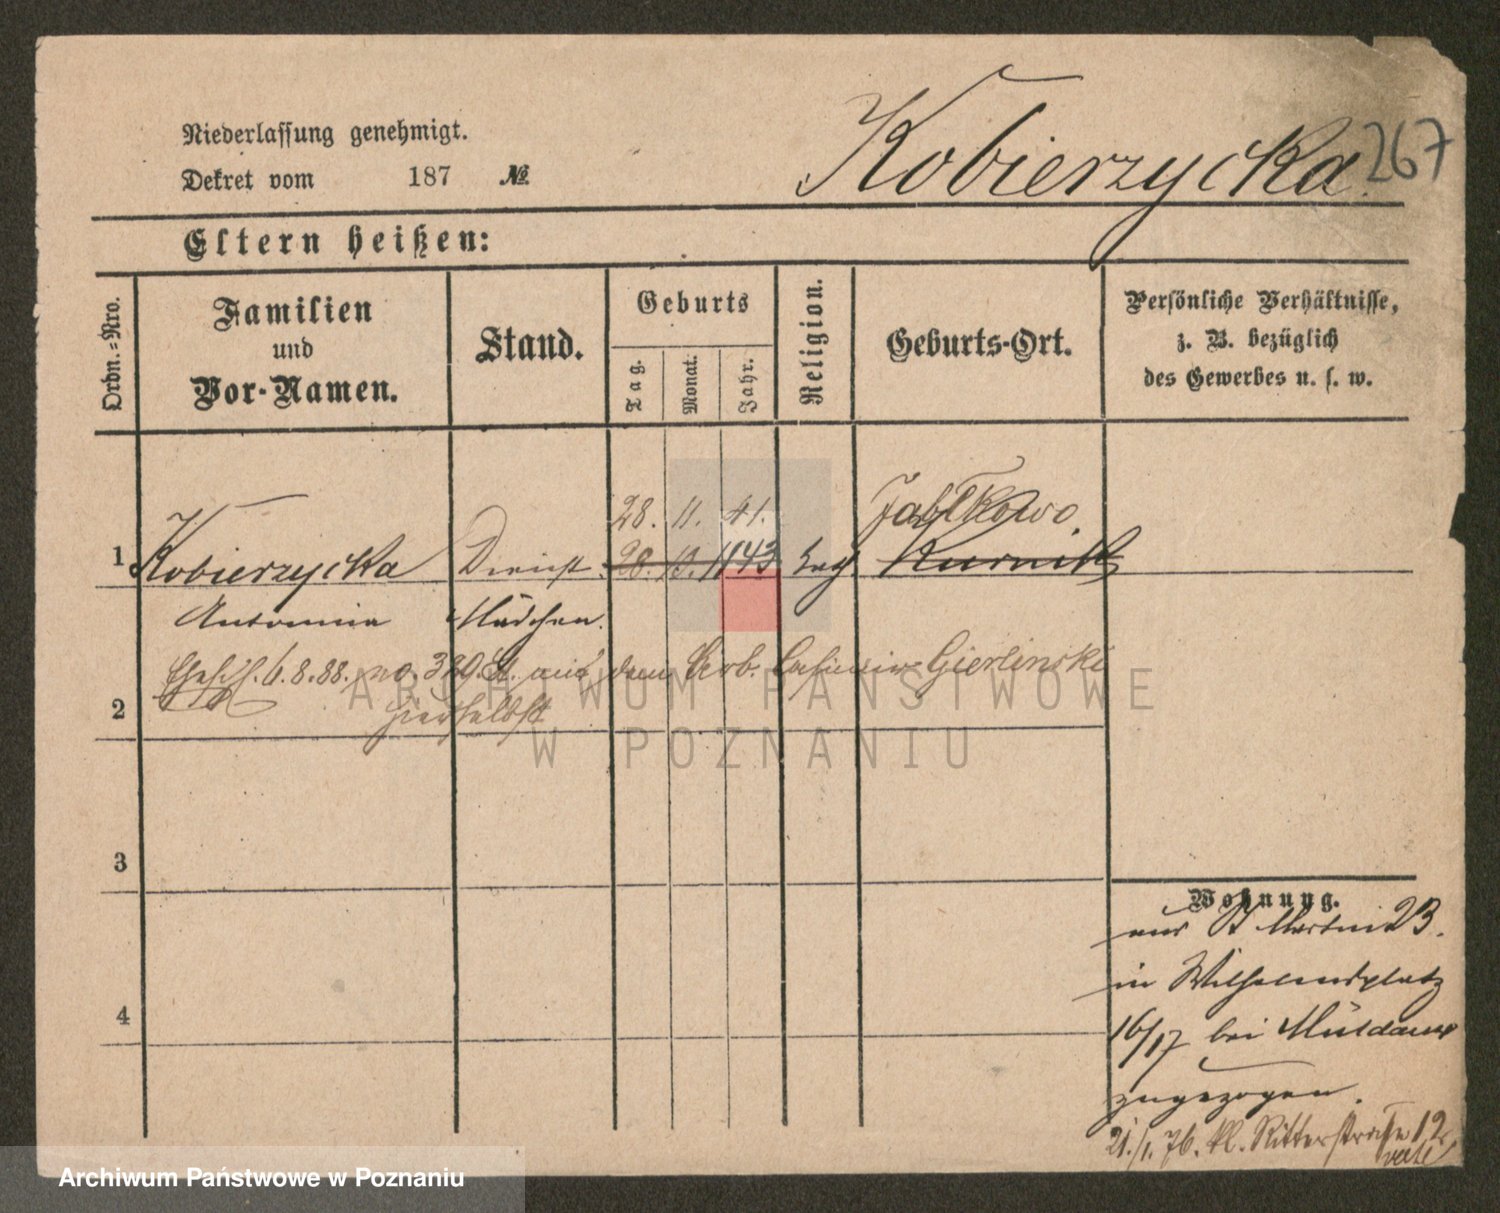 Niederlassung genehmigt.
Dekret vom 187 №
Kobierzycka
267
Eltern heißen:
Ordn.-Nro.
Familien
und
Vor-Namen.
Stand.
Geburts
Tag.
Monat.
Jahr.
Religion.
Geburts-Ort.
Persönliche Verhältnisse,
z. B. bezüglich
des Gewerbes u. s. w.
28. 11. 41. Jabłkowo
1 Kobierzycka Dienst 28. 1843 Kurnik
Antonina Mädchen.
Ehesch. 6.8.88. no. 389. dem Arb. Casimir Gierlinski
2 hierselbst
3
4
Wohnung.
aus St Martin 23.
in Wilhelmsplatz
16/17 bei
zugezogen.
21./1. 76. kl. Ritterstraße 12
ARCHIWUM PAŃSTWOWE
W POZNANIU
Archiwum Państwowe w Poznaniu